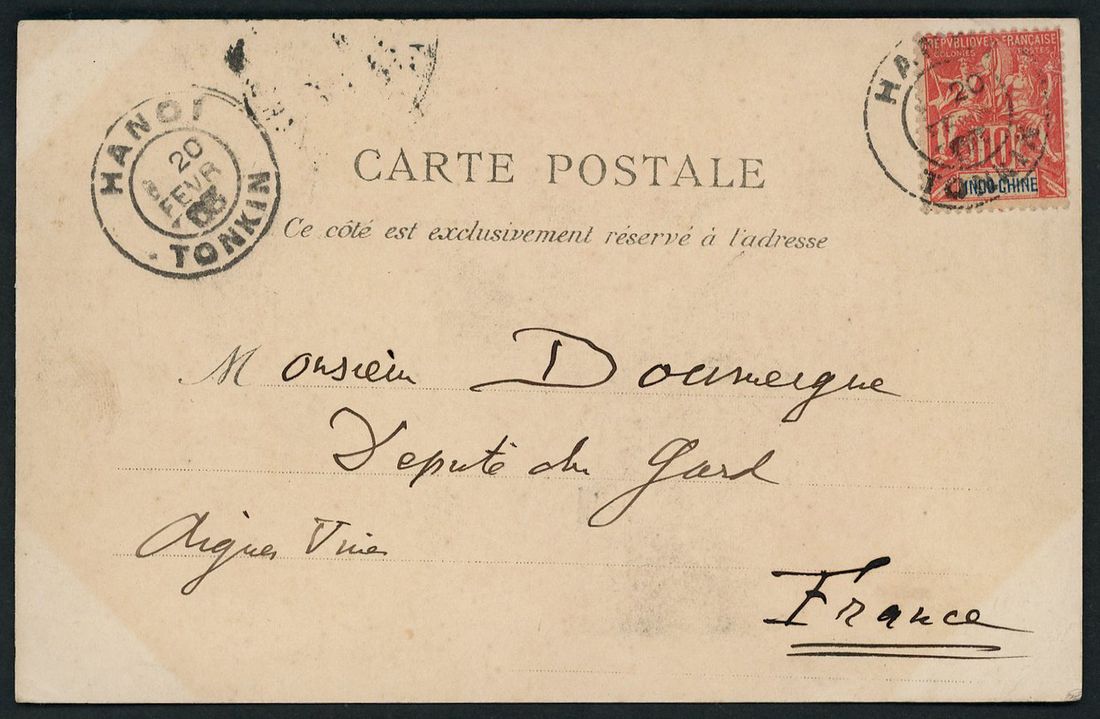 HANOI
20
FEVR
TONKIN
REPVBLIQUE FRANÇAISE
COLONIES POSTES
20
10
TONKIN
INDO-CHINE
CARTE POSTALE
Ce côté est exclusivement réservé à l'adresse
Monsieur Doumergue
Député du Gard
Aigues Vives
France